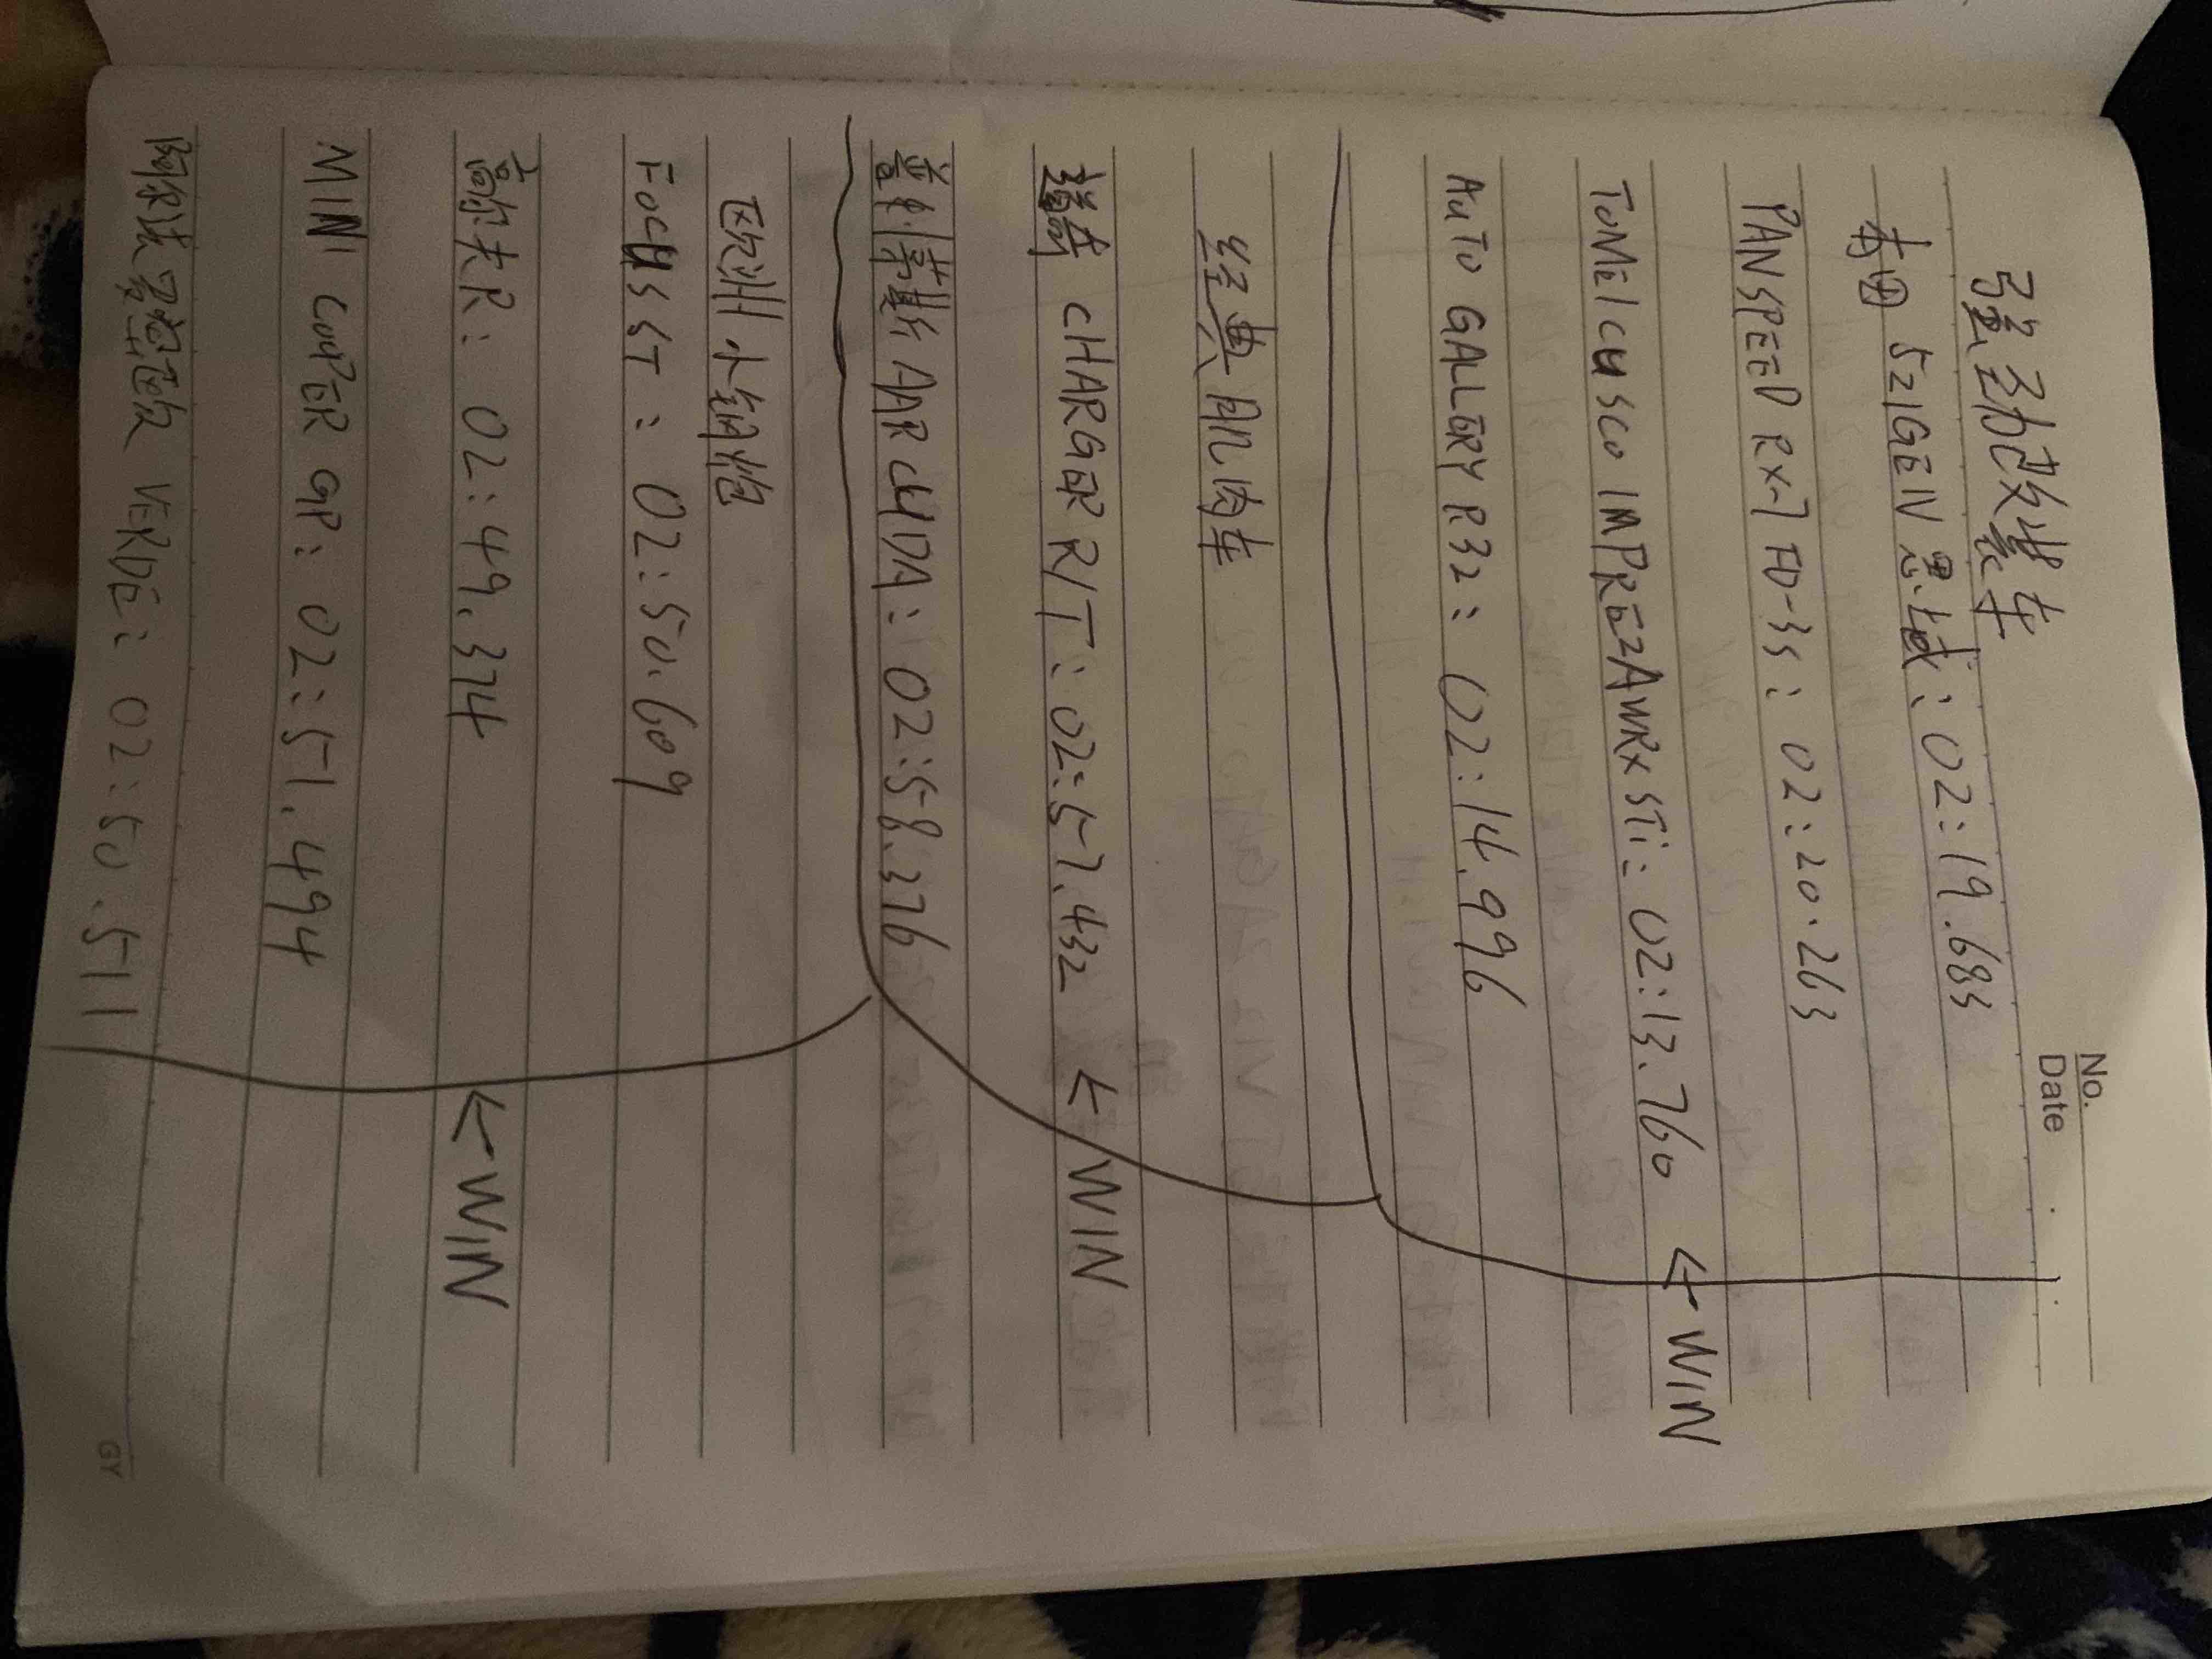 No.
Date
强劲改装车
本田 5ZIGEN 思域：02：19.683
PANSPEED RX-7 FD-3S：02：20.263
TOMEI CUSCO IMPREZA WRX STi：02：13.760 ←WIN
AUTO GALLERY R32：02：14.996
经典肌肉车
道奇 CHARGER R/T：02：57.432 ←WIN
普利茅斯 AAR CUDA：02：58.376
欧洲小钢炮
FOCUS ST：02：50.609
高尔夫R：02：49.374 ←WIN
MINI COOPER GP：02：51.494
阿尔法罗密欧 VERDE：02：50.511
GY